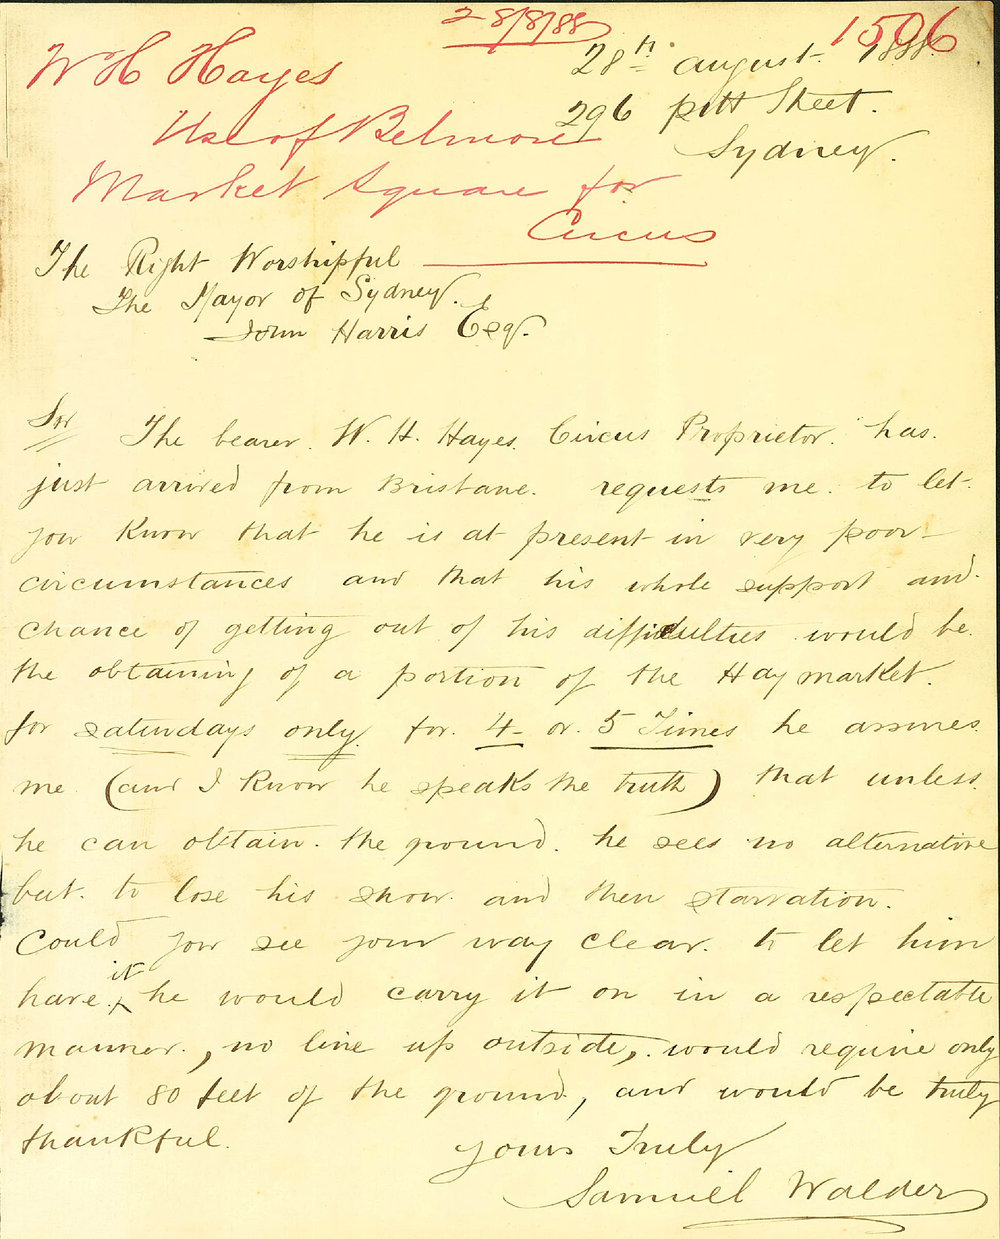 28/8/88
1506
W H Hayes
Use of Belmore
Market Square for
Circus
28th August 1888
296 Pitt Street.
Sydney.
The Right Worshipful
The Mayor of Sydney.
John Harris Esq.
Sir
The bearer. W. H. Hayes. Circus Proprietor. has.
just arrived from Brisbane. requests me. to let
you know that he is at present in very poor
circumstances and that his whole support and.
chance of getting out of his difficulties would be.
the obtaining of a portion of the Haymarket.
for saturdays only. for. 4 or. 5 Times he assures.
me. (and I know he speaks the truth) that unless.
he can obtain. the ground. he sees no alternative
but. to lose his show. and then starvation.
Could you see your way clear. to let him
have. it he would carry it on in a respectable
manner., no line up outside, would require only
about 80 feet of the ground, and would be truly
thankful.
Yours Truly
Samuel Walder